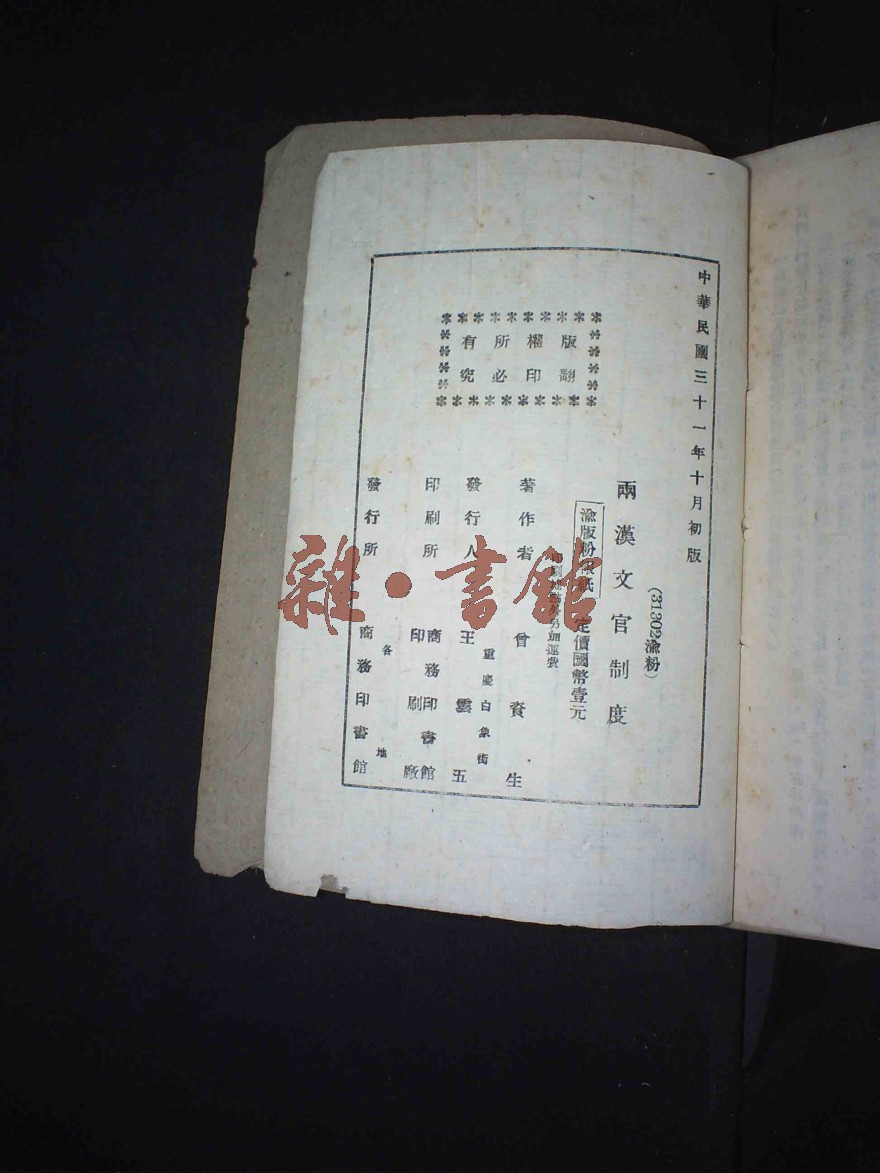 中華民國三十一年十月初版
版權所有
翻印必究
(31302渝粉)
兩漢文官制度
渝版粉報紙 定價國幣壹元
著作者 曾資生
發行人 王雲五
重慶白象街
印刷所 商務印書館印刷廠
發行所 各地商務印書館
雜·書館